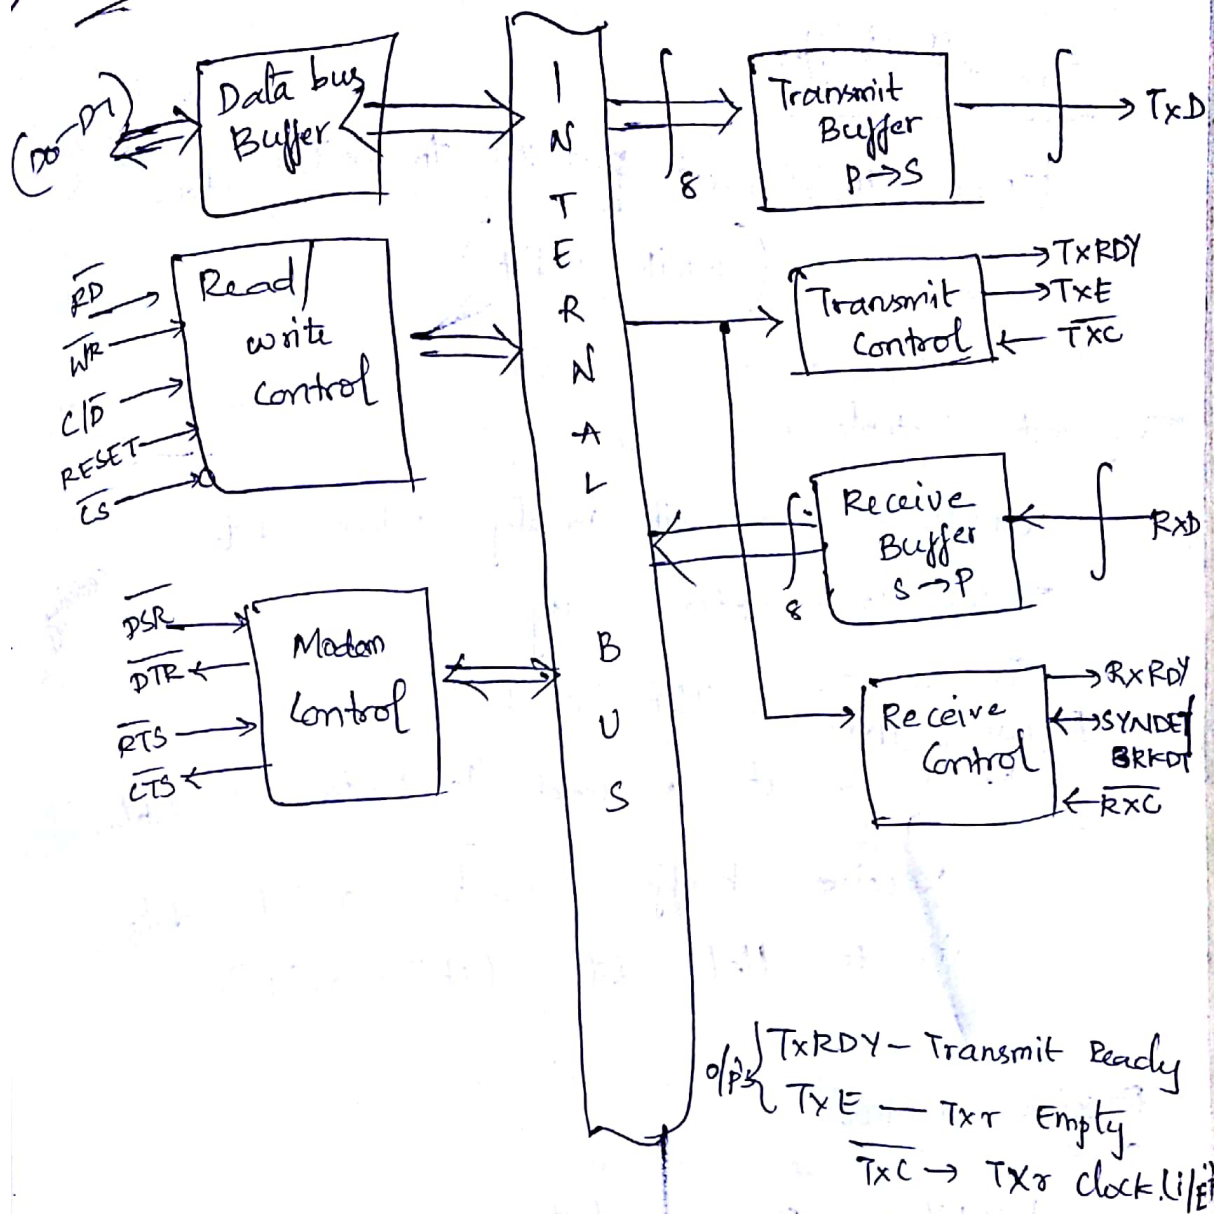 (D0-D7)
Data bus
Buffer
Read/
write
control
R̅D̅
W̅R̅
C/D̅
RESET
C̅S̅
Modem
Control
D̅S̅R̅
D̅T̅R̅
R̅T̅S̅
C̅T̅S̅
INTERNAL
BUS
8
Transmit
Buffer
P→S
TxD
Transmit
Control
TxRDY
TxE
T̅X̅C̅
Receive
Buffer
S→P
8
RXD
Receive
Control
RxRDY
SYNDET
BRKDT
R̅X̅C̅
o/p's { TxRDY – Transmit Ready
TxE — Txr Empty
T̅x̅C̅ → TXr clock.